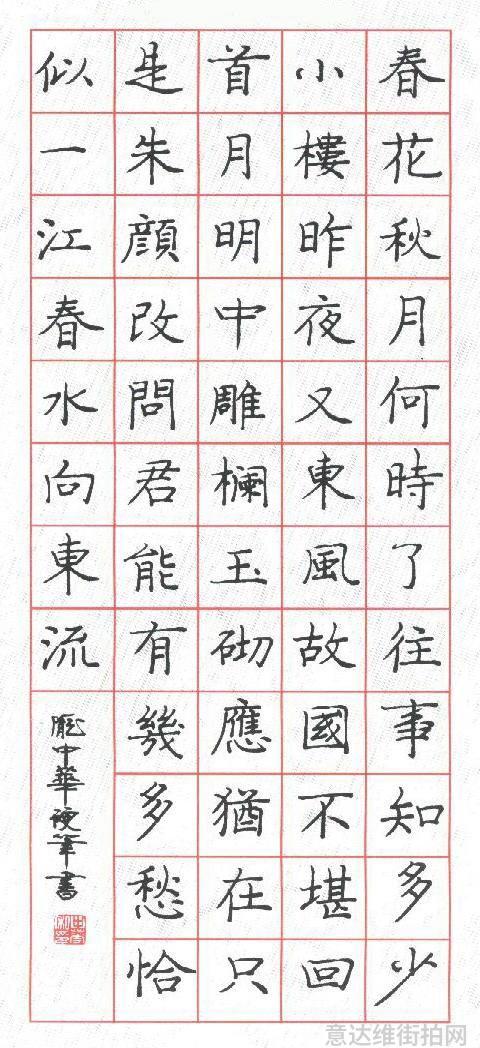 春花秋月何時了往事知多少
小樓昨夜又東風故國不堪回
首月明中雕欄玉砌應猶在只
是朱顔改問君能有幾多愁恰
似一江春水向東流
龐中華硬筆書
意达维街拍网